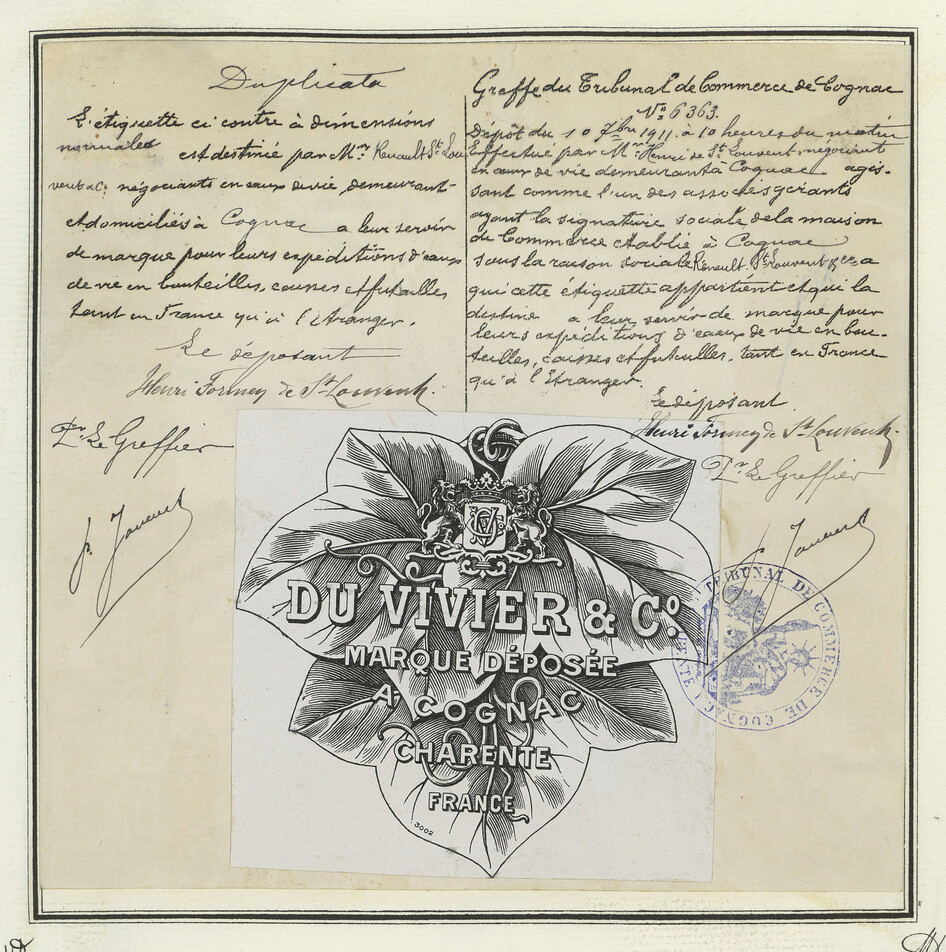 Duplicata
L'étiquette ci contre à dimensions
normales est destinée par Mrs Renault St Lou
vent & Co négociants en eaux de vie, demeurant
et domiciliés à Cognac a leur servir
de marque pour leurs expéditions d'eaux
de vie en bouteilles, caisses et futailles
tant en France qu'à l'étranger.
Le déposant
Henri Formey de St Louvent
Pr Le Greffier
Greffe du Tribunal de Commerce de Cognac
No 6363.
Dépôt du 10 7bre 1911 à 10 heures du matin
Effectué par Mr Henri de St Louvent, négociant
en eaux de vie demeurant à Cognac agis-
sant comme l'un des associés gérants
ayant la signature sociale de la maison
de Commerce établie à Cognac
sous la raison sociale Renault St Louvent & Co a
qui cette étiquette appartient et qui la
destine a leur servir de marque pour
leurs expéditions d'eaux de vie en bou-
teilles, caisses et futailles, tant en France
qu'à l'étranger.
Le déposant
Henri Formey de St Louvent
Pr Le Greffier
DU VIVIER & Co.
MARQUE DÉPOSÉE
A COGNAC
CHARENTE
FRANCE
3002
TRIBUNAL DE COMMERCE DE COGNAC